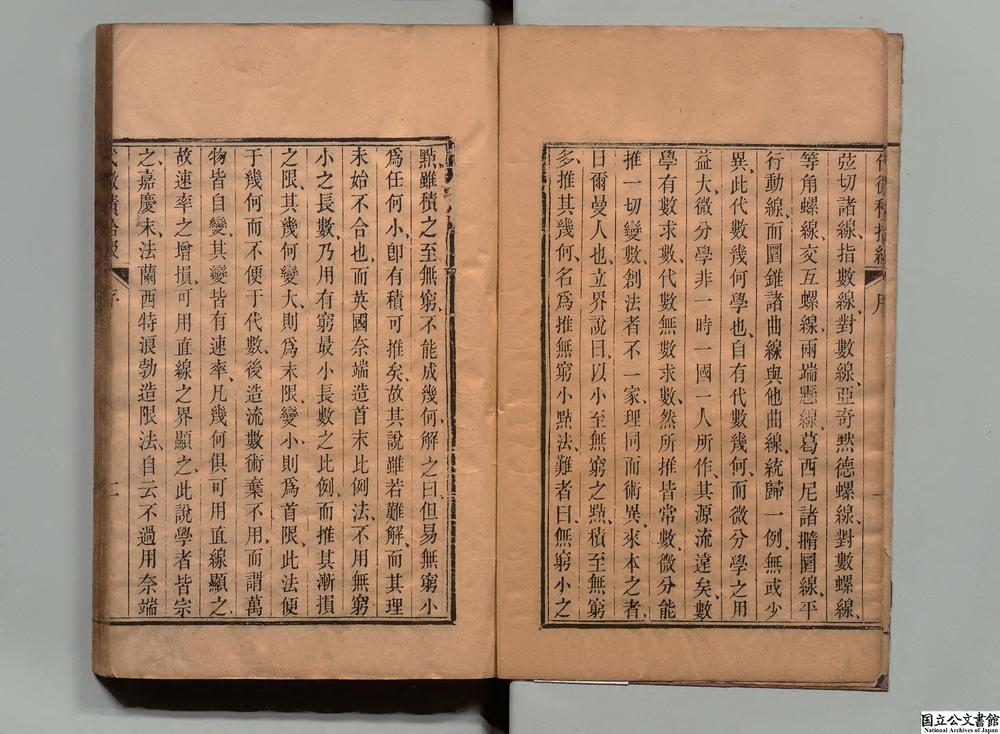 弦切諸線、指數線、對數線、亞奇默德螺線、對數螺線、
等角螺線、交互螺線、兩端懸線、葛西尼諸撱圜線、平
行動線、而圜錐諸曲線與他曲線、統歸一例、無或少
異、此代數幾何學也、自有代數幾何、而微分學之用
益大、微分學非一時一國一人所作、其源流遠矣、數
學有數求數、代數無數求數、然所推皆常數、微分能
推一切變數、創法者不一家、理同而術異、來本之者、
日爾曼人也、立界說曰、以小至無窮之㸃、積至無窮
多、推其幾何、名爲推無窮小㸃法、難者曰、無窮小之
㸃、雖積之至無窮、不能成幾何、解之曰、但易無窮小
爲任何小、卽有積可推矣、故其說雖若難解、而其理
未始不合也、而英國奈端造首末比例法、不用無窮
小之長數、乃用有窮最小長數之比例、而推其漸損
之限、其幾何變大、則爲末限、變小、則爲首限、此法便
于幾何而不便于代數、後造流數術棄不用、而謂萬
物皆自變、其變皆有速率、凡幾何俱可用直線顯之、
故速率之增損、可用直線之界顯之、此說學者皆宗
之、嘉慶末、法蘭西特浪勃造限法、自云不過用奈端
代微積拾級 序 二
国立公文書館
National Archives of Japan